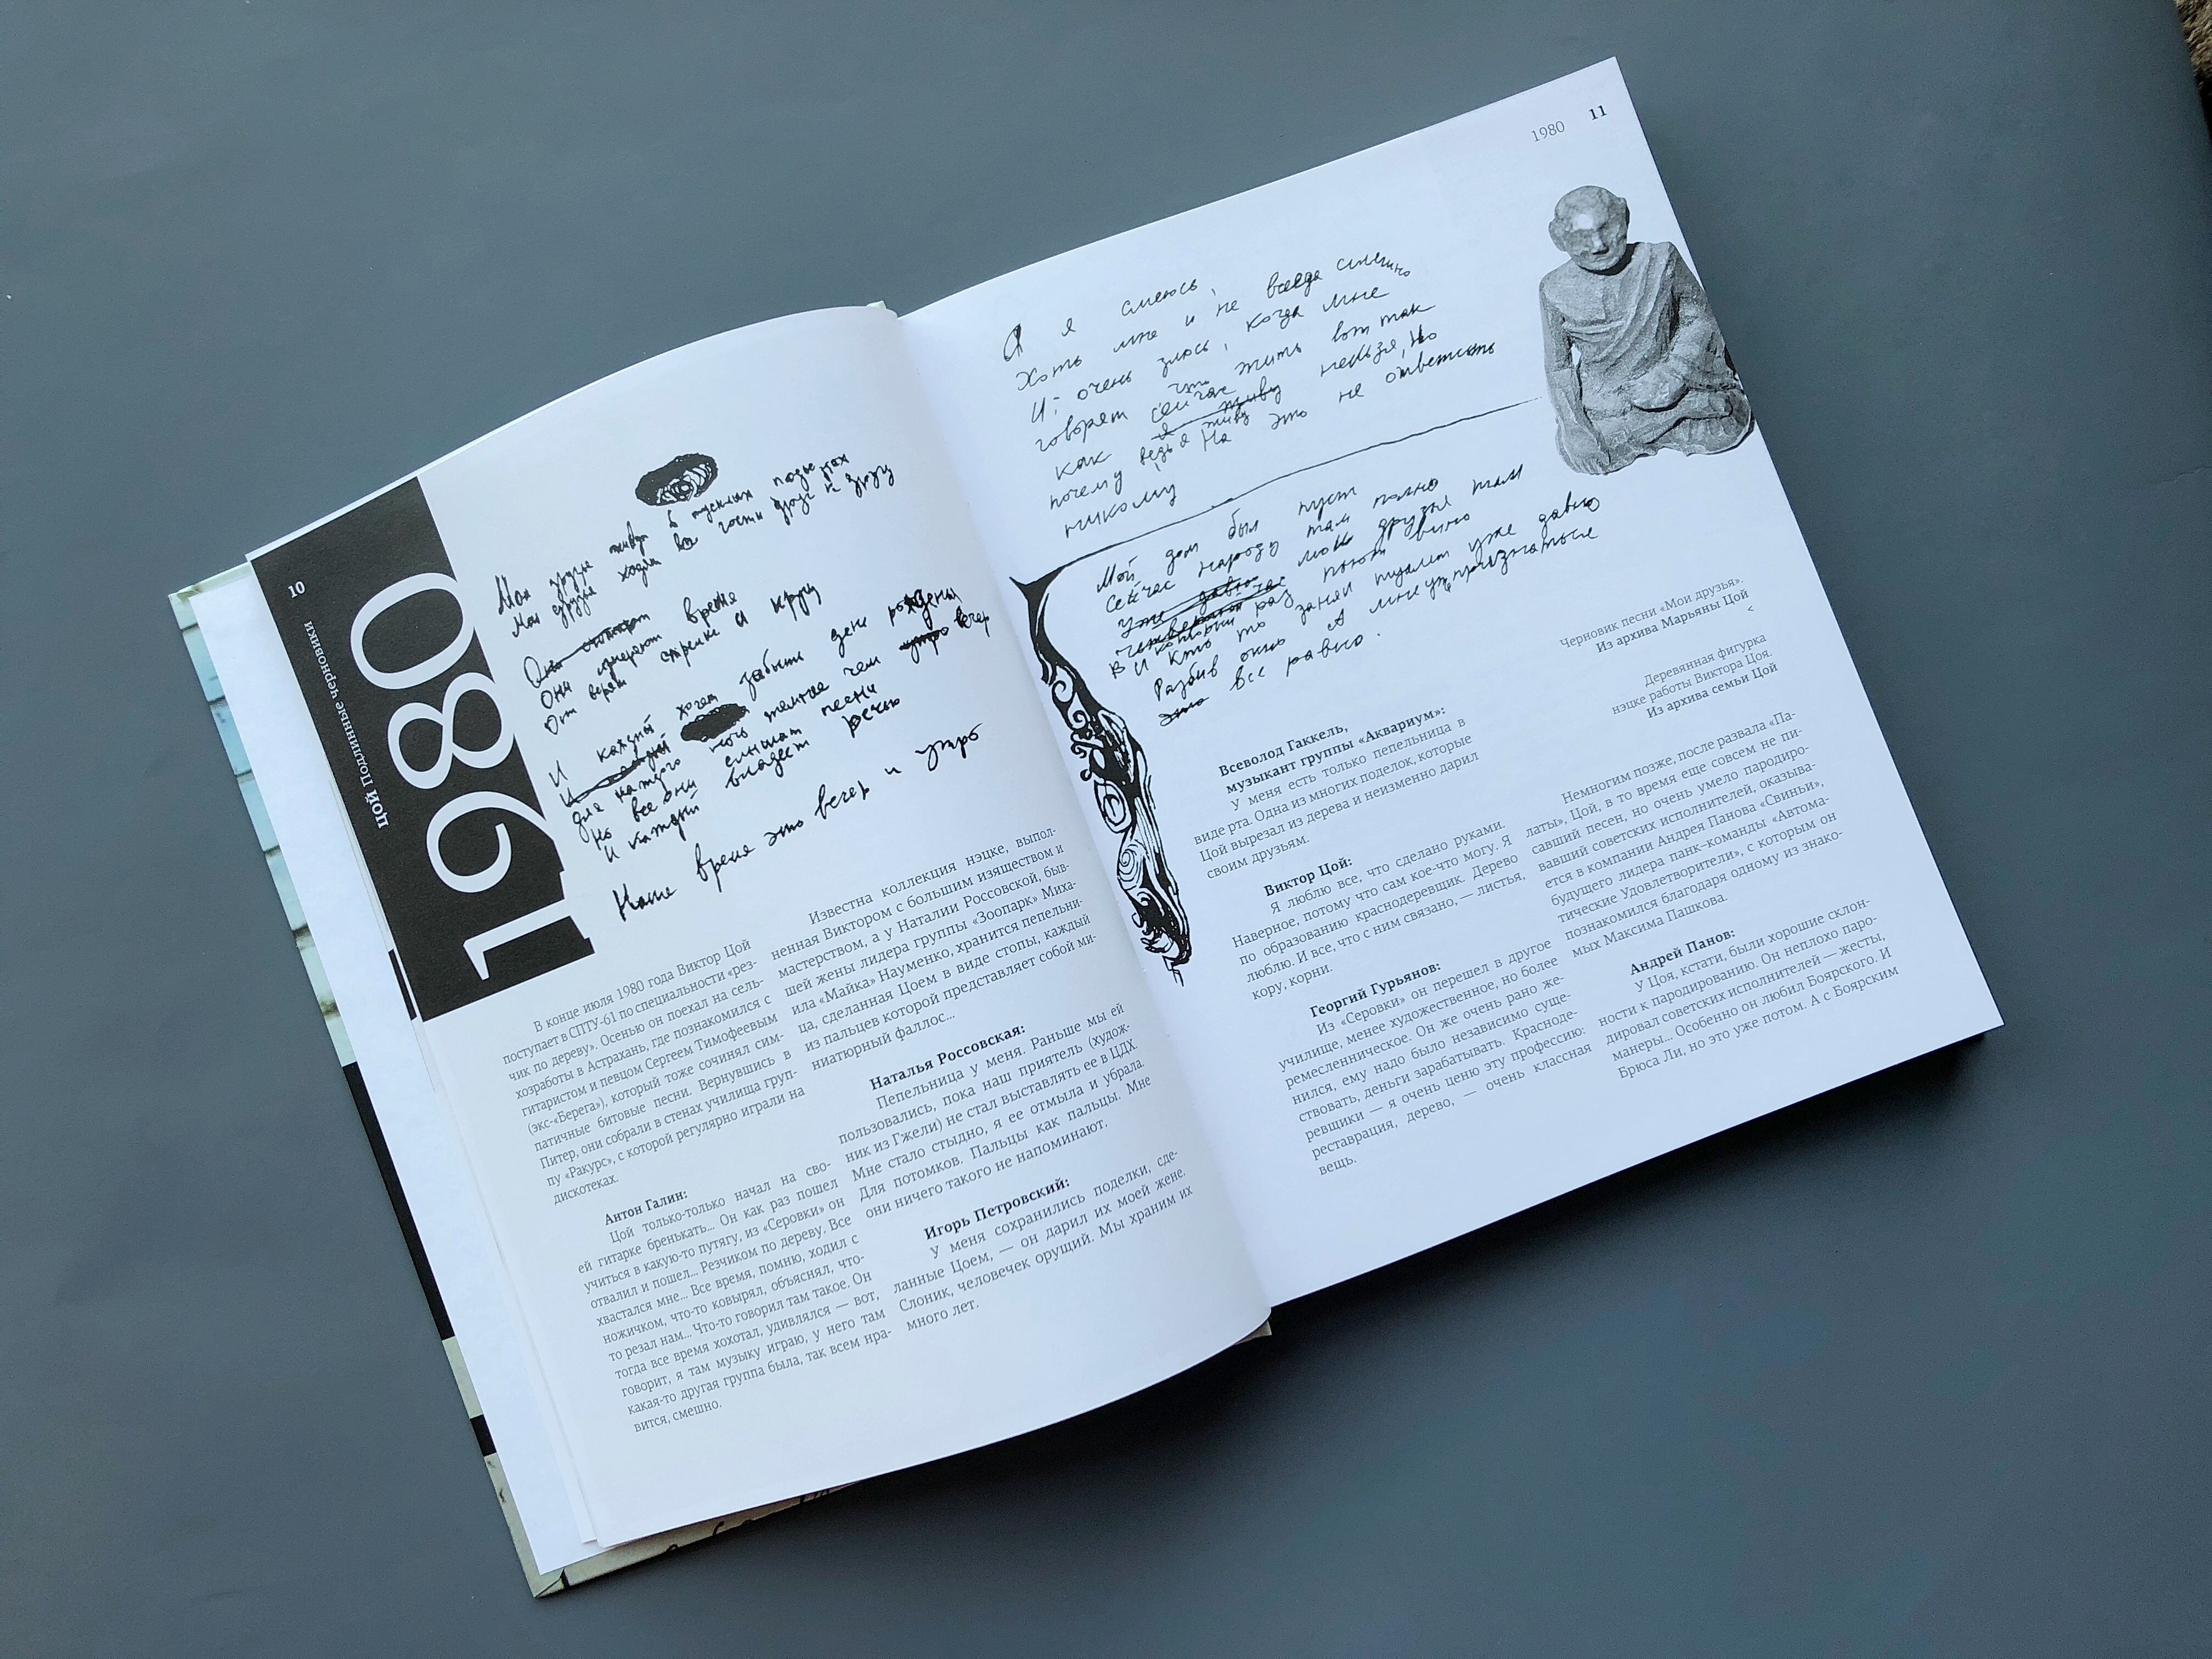 10
ЦОЙ Подлинные черновики
1980
Мои друзья живут в тусклых
Мои друзья ходят в гости друг к другу
Они
Они измеряют время
От веры стрелки к кругу
И каждый хочет забыть день рождения
И каждый
для каждого ночь темнее чем утро вечер
Но все они слышат песни
И каждый владеет речью
Наше время это вечер и утро
В конце июля 1980 года Виктор Цой
поступает в СПТУ-61 по специальности «рез-
чик по дереву». Осенью он поехал на сель-
хозработы в Астрахань, где познакомился с
гитаристом и певцом Сергеем Тимофеевым
(экс-«Берега»), который тоже сочинял сим-
патичные битовые песни. Вернувшись в
Питер, они собрали в стенах училища груп-
пу «Ракурс», с которой регулярно играли на
дискотеках.
Антон Галин:
Цой только-только начал на сво-
ей гитарке бренькать... Он как раз пошел
учиться в какую-то путягу, из «Серовки» он
отвалил и пошел... Резчиком по дереву. Все
хвастался мне... Все время, помню, ходил с
ножичком, что-то ковырял, объяснял, что-
то резал нам... Что-то говорил там такое. Он
тогда все время хохотал, удивлялся — вот,
говорит, я там музыку играю, у него там
какая-то другая группа была, так всем нра-
вится, смешно.
Известна коллекция нэцке, выпол-
ненная Виктором с большим изяществом и
мастерством, а у Наталии Россовской, быв-
шей жены лидера группы «Зоопарк» Миха-
ила «Майка» Науменко, хранится пепельни-
ца, сделанная Цоем в виде стопы, каждый
из пальцев которой представляет собой ми-
ниатюрный фаллос...
Наталья Россовская:
Пепельница у меня. Раньше мы ей
пользовались, пока наш приятель (худож-
ник из Гжели) не стал выставлять ее в ЦДХ.
Мне стало стыдно, я ее отмыла и убрала.
Для потомков. Пальцы как пальцы. Мне
они ничего такого не напоминают.
Игорь Петровский:
У меня сохранились поделки, сде-
ланные Цоем, — он дарил их моей жене.
Слоник, человечек орущий. Мы храним их
много лет.
1980 11
А я смеюсь,
Хоть мне и не всегда смешно
И очень злюсь, когда мне
говорят что жить вот так
как сейчас я живу нельзя, Но
почему ведь я живу На это не ответить
никому
Мой дом был пуст
Сейчас народу там полно
уже давно мои друзья там
В который раз поют вино
И кто то занял туалет уже давно
Разбив окно А мне уж признаться
это все равно.
Черновик песни «Мои друзья».
Из архива Марьяны Цой
<
Деревянная фигурка
нэцке работы Виктора Цоя.
Из архива семьи Цой
Всеволод Гаккель,
музыкант группы «Аквариум»:
У меня есть только пепельница в
виде рта. Одна из многих поделок, которые
Цой вырезал из дерева и неизменно дарил
своим друзьям.
Виктор Цой:
Я люблю все, что сделано руками.
Наверное, потому что сам кое-что могу. Я
по образованию краснодеревщик. Дерево
люблю. И все, что с ним связано, — листья,
кору, корни.
Георгий Гурьянов:
Из «Серовки» он перешел в другое
училище, менее художественное, но более
ремесленническое. Он же очень рано же-
нился, ему надо было независимо суще-
ствовать, деньги зарабатывать. Красноде-
ревщики — я очень ценю эту профессию:
реставрация, дерево, — очень классная
вещь.
Немногим позже, после развала «Па-
латы», Цой, в то время еще совсем не пи-
савший песен, но очень умело пародиро-
вавший советских исполнителей, оказыва-
ется в компании Андрея Панова «Свиньи»,
будущего лидера панк–команды «Автома-
тические Удовлетворители», с которым он
познакомился благодаря одному из знако-
мых Максима Пашкова.
Андрей Панов:
У Цоя, кстати, были хорошие склон-
ности к пародированию. Он неплохо паро-
дировал советских исполнителей — жесты,
манеры... Особенно он любил Боярского. И
Брюса Ли, но это уже потом. А с Боярским